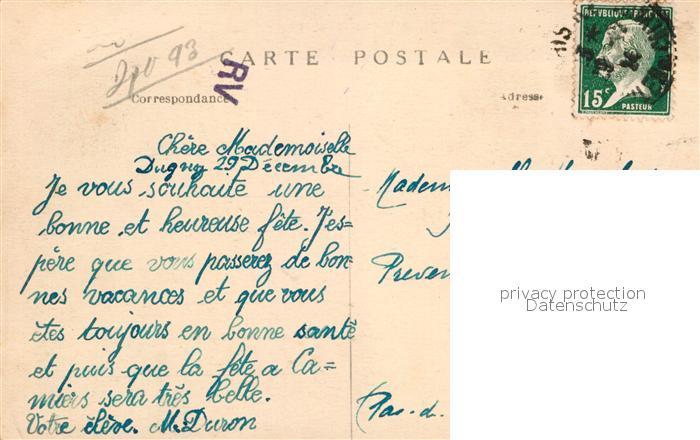 Dpt 93
CARTE POSTALE
RV
RÉPUBLIQUE FRANÇAISE
15c
PASTEUR
Correspondance
Adresse
Chère Mademoiselle
Dugny 29 Décembre
Je vous souhaite une
bonne et heureuse fête. J'es=
père que vous passerez de bon=
nes vacances et que vous
êtes toujours en bonne santé
et puis que la fête a Ca=
miers sera très belle.
Votre élève. M. Duron
Madem
Preven
Pas-d.
privacy protection
Datenschutz